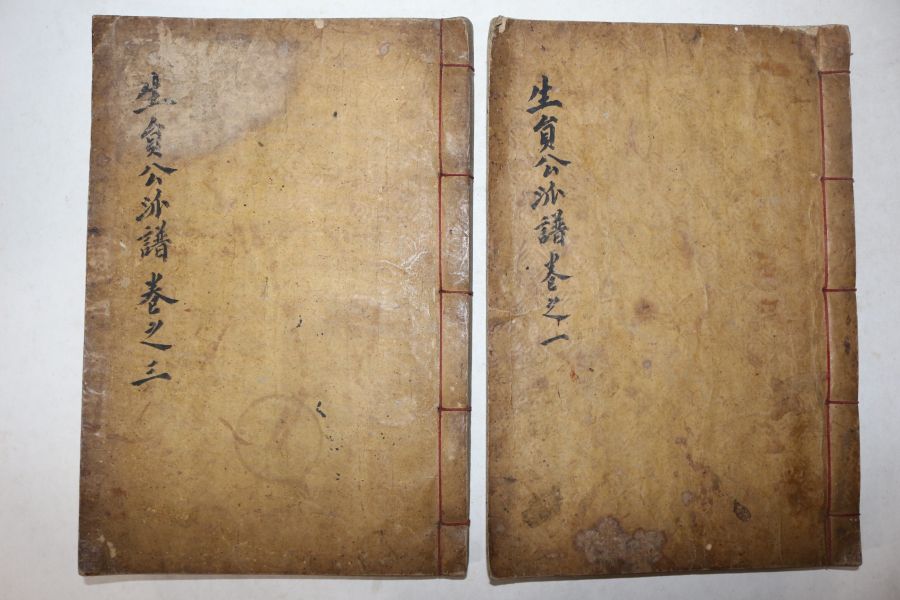 生員公派譜 卷之三
生員公派譜 卷之一